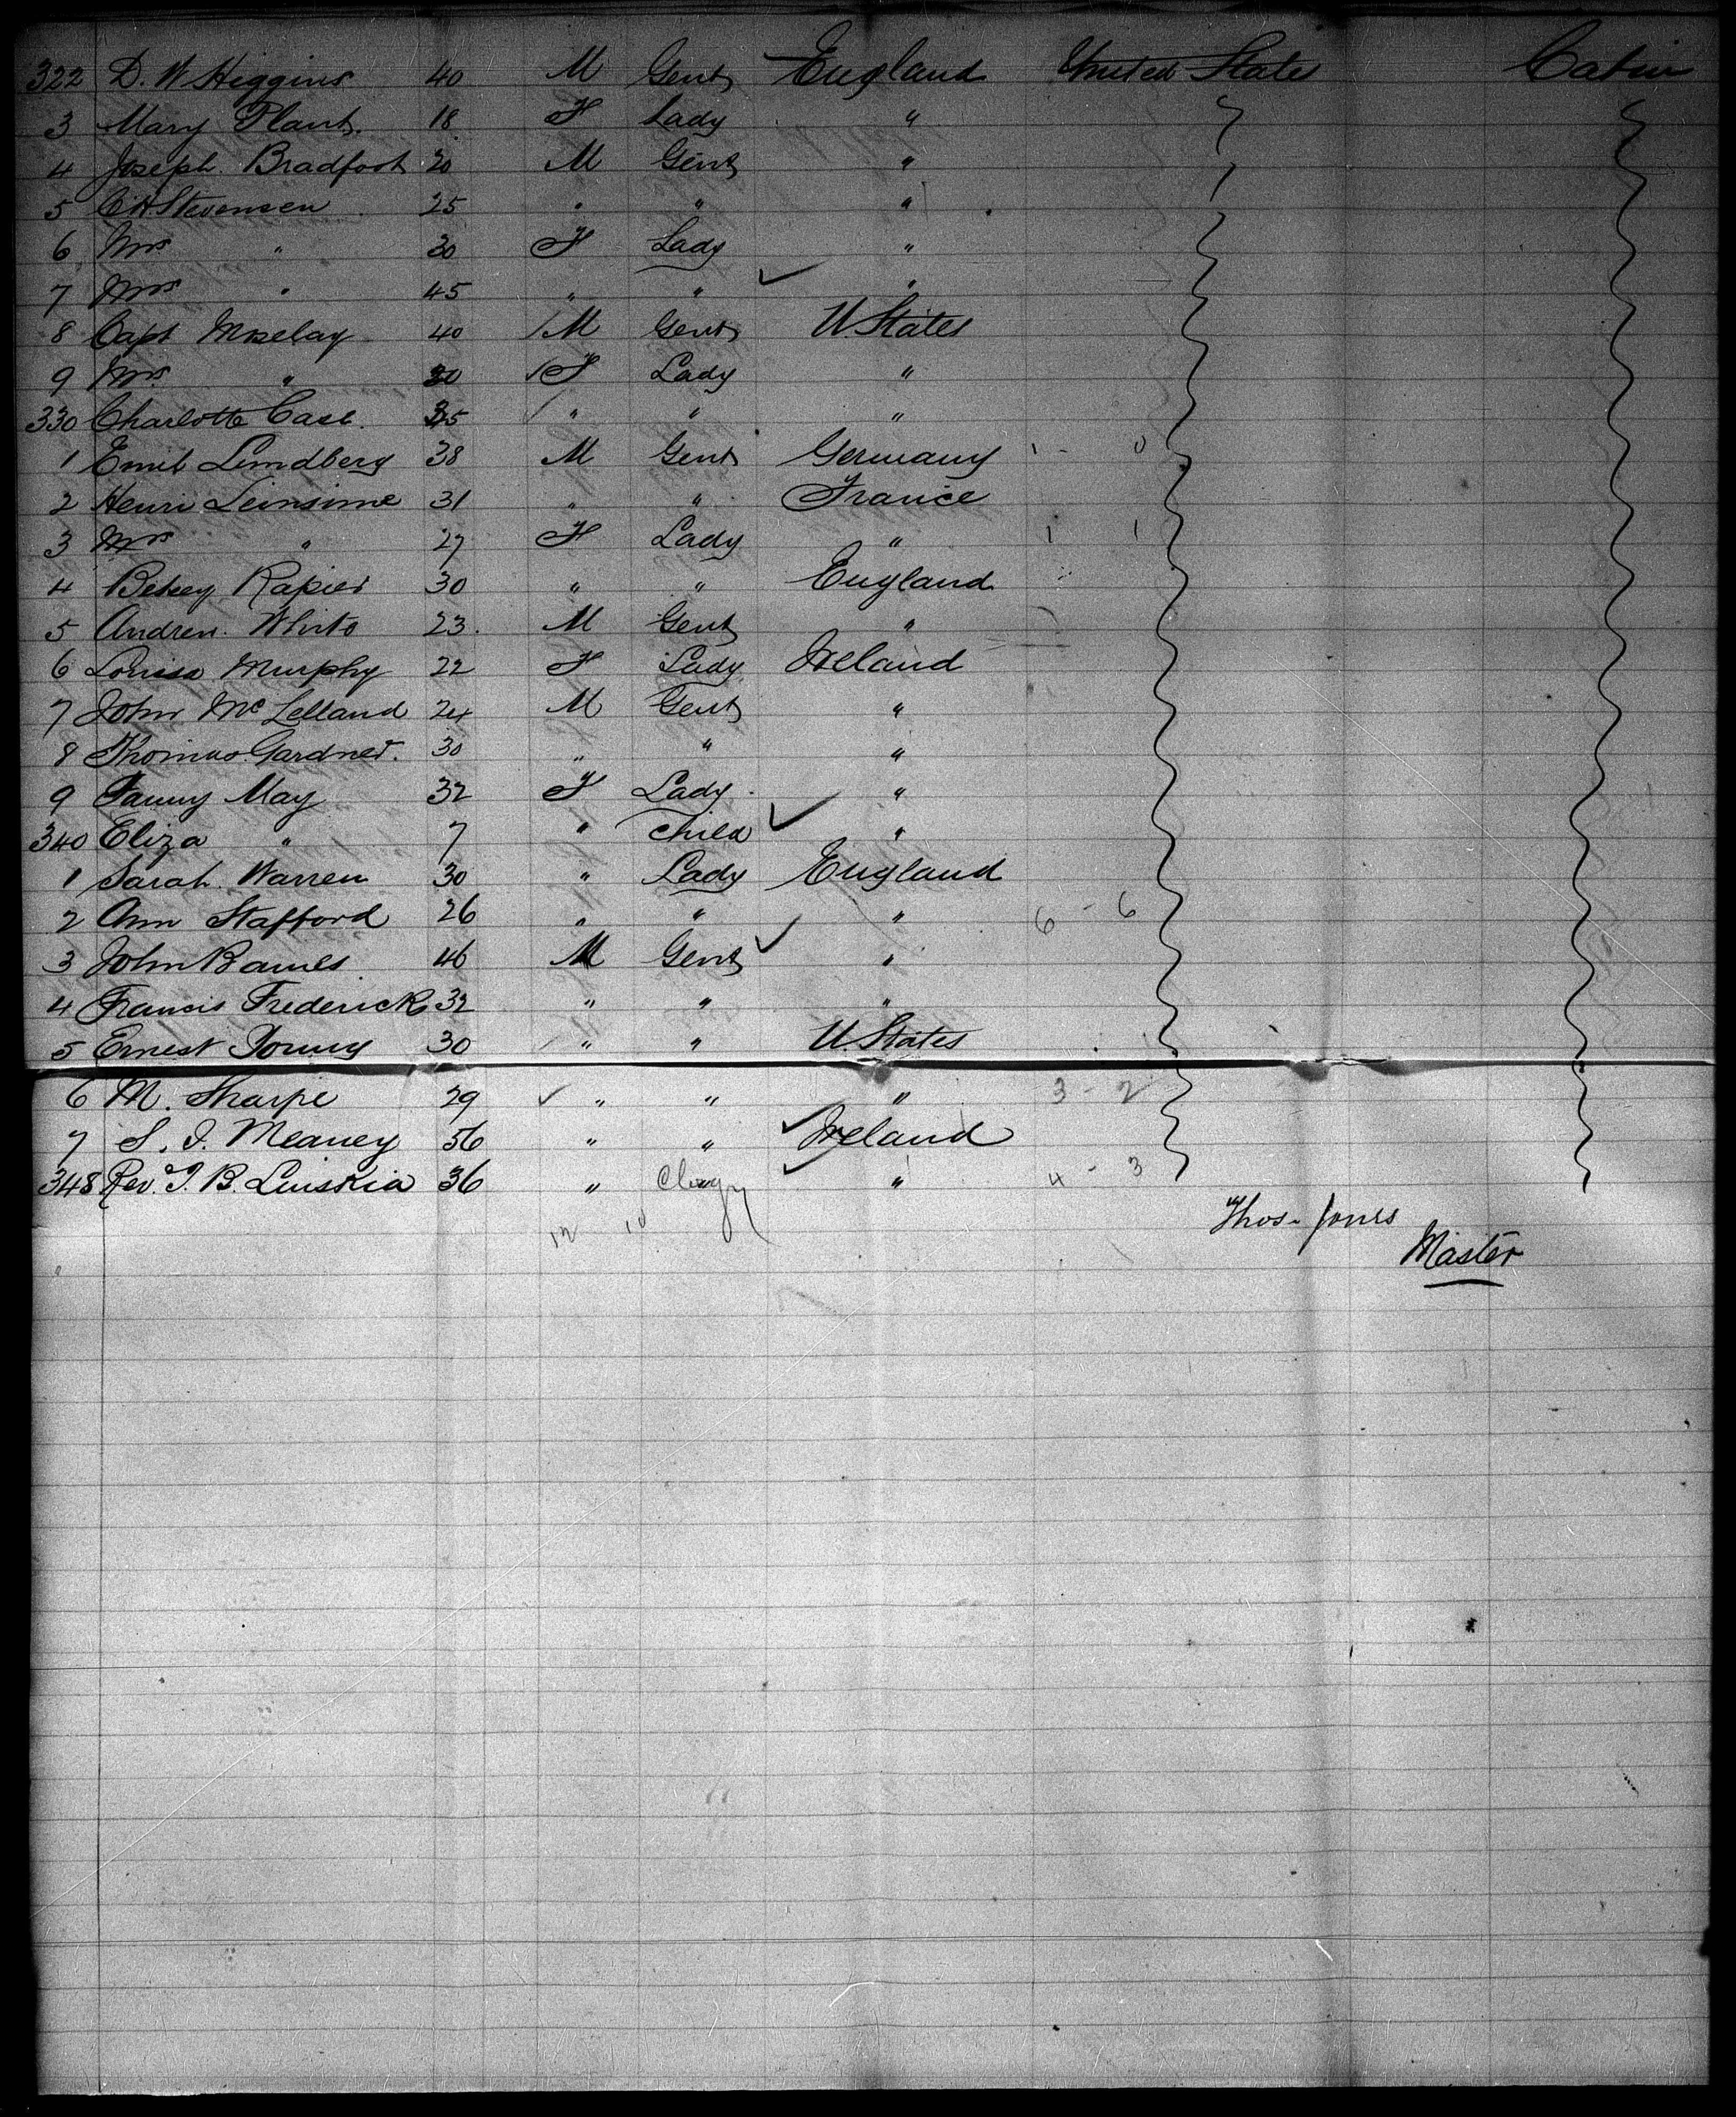 322 D. W Higgins 40 M Gent England United States Cabin
3 Mary Plant. 18 F Lady "
4 Joseph Bradfoot 20 M Gent "
5 C H Stevensen 25 " " "
6 Mrs " 30 F Lady "
7 Mrs " 45 " " "
8 Capt 40 M Gent U. States
9 Mrs " 30 F Lady "
330 Charlotte Case. " " "
1 Emil Lindberg 38 M Gent Germany 1 - 0
2 Henri 31 " " France
3 Mrs " 27 F Lady " 1 1
4 Betsey Rapier 30 " " England
5 Andrew White 23. M Gent "
6 Louisa Murphy 22 F Lady Ireland
7 John McLelland 24 M Gent "
8 Thomas Gardner. 30 " " "
9 Fanny May 32 F Lady "
340 Eliza " 7 " Child "
1 Sarah Warren 30 " Lady England
2 Ann Stafford 26 " " " 6 - 6
3 John Barnes 46 M Gent "
4 Francis Frederick 32 " " "
5 Ernest Young 30 " " U. States
6 M. Sharpe 29 " " " 3 - 2
7 S. J. Meaney 56 " " Ireland
348 Rev. J. B. 36 " Clergy " 4 - 3
12 10
Thos. Jones
Master